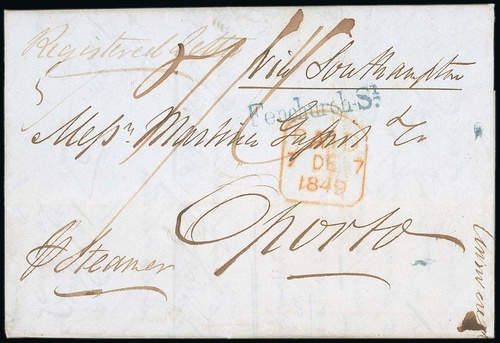 Registered Letter
Via Southampton
Fenchurch St
PAID
7 DE 7
1849
Messrs Martinez Gassiot & Co
Oporto
p Steamer